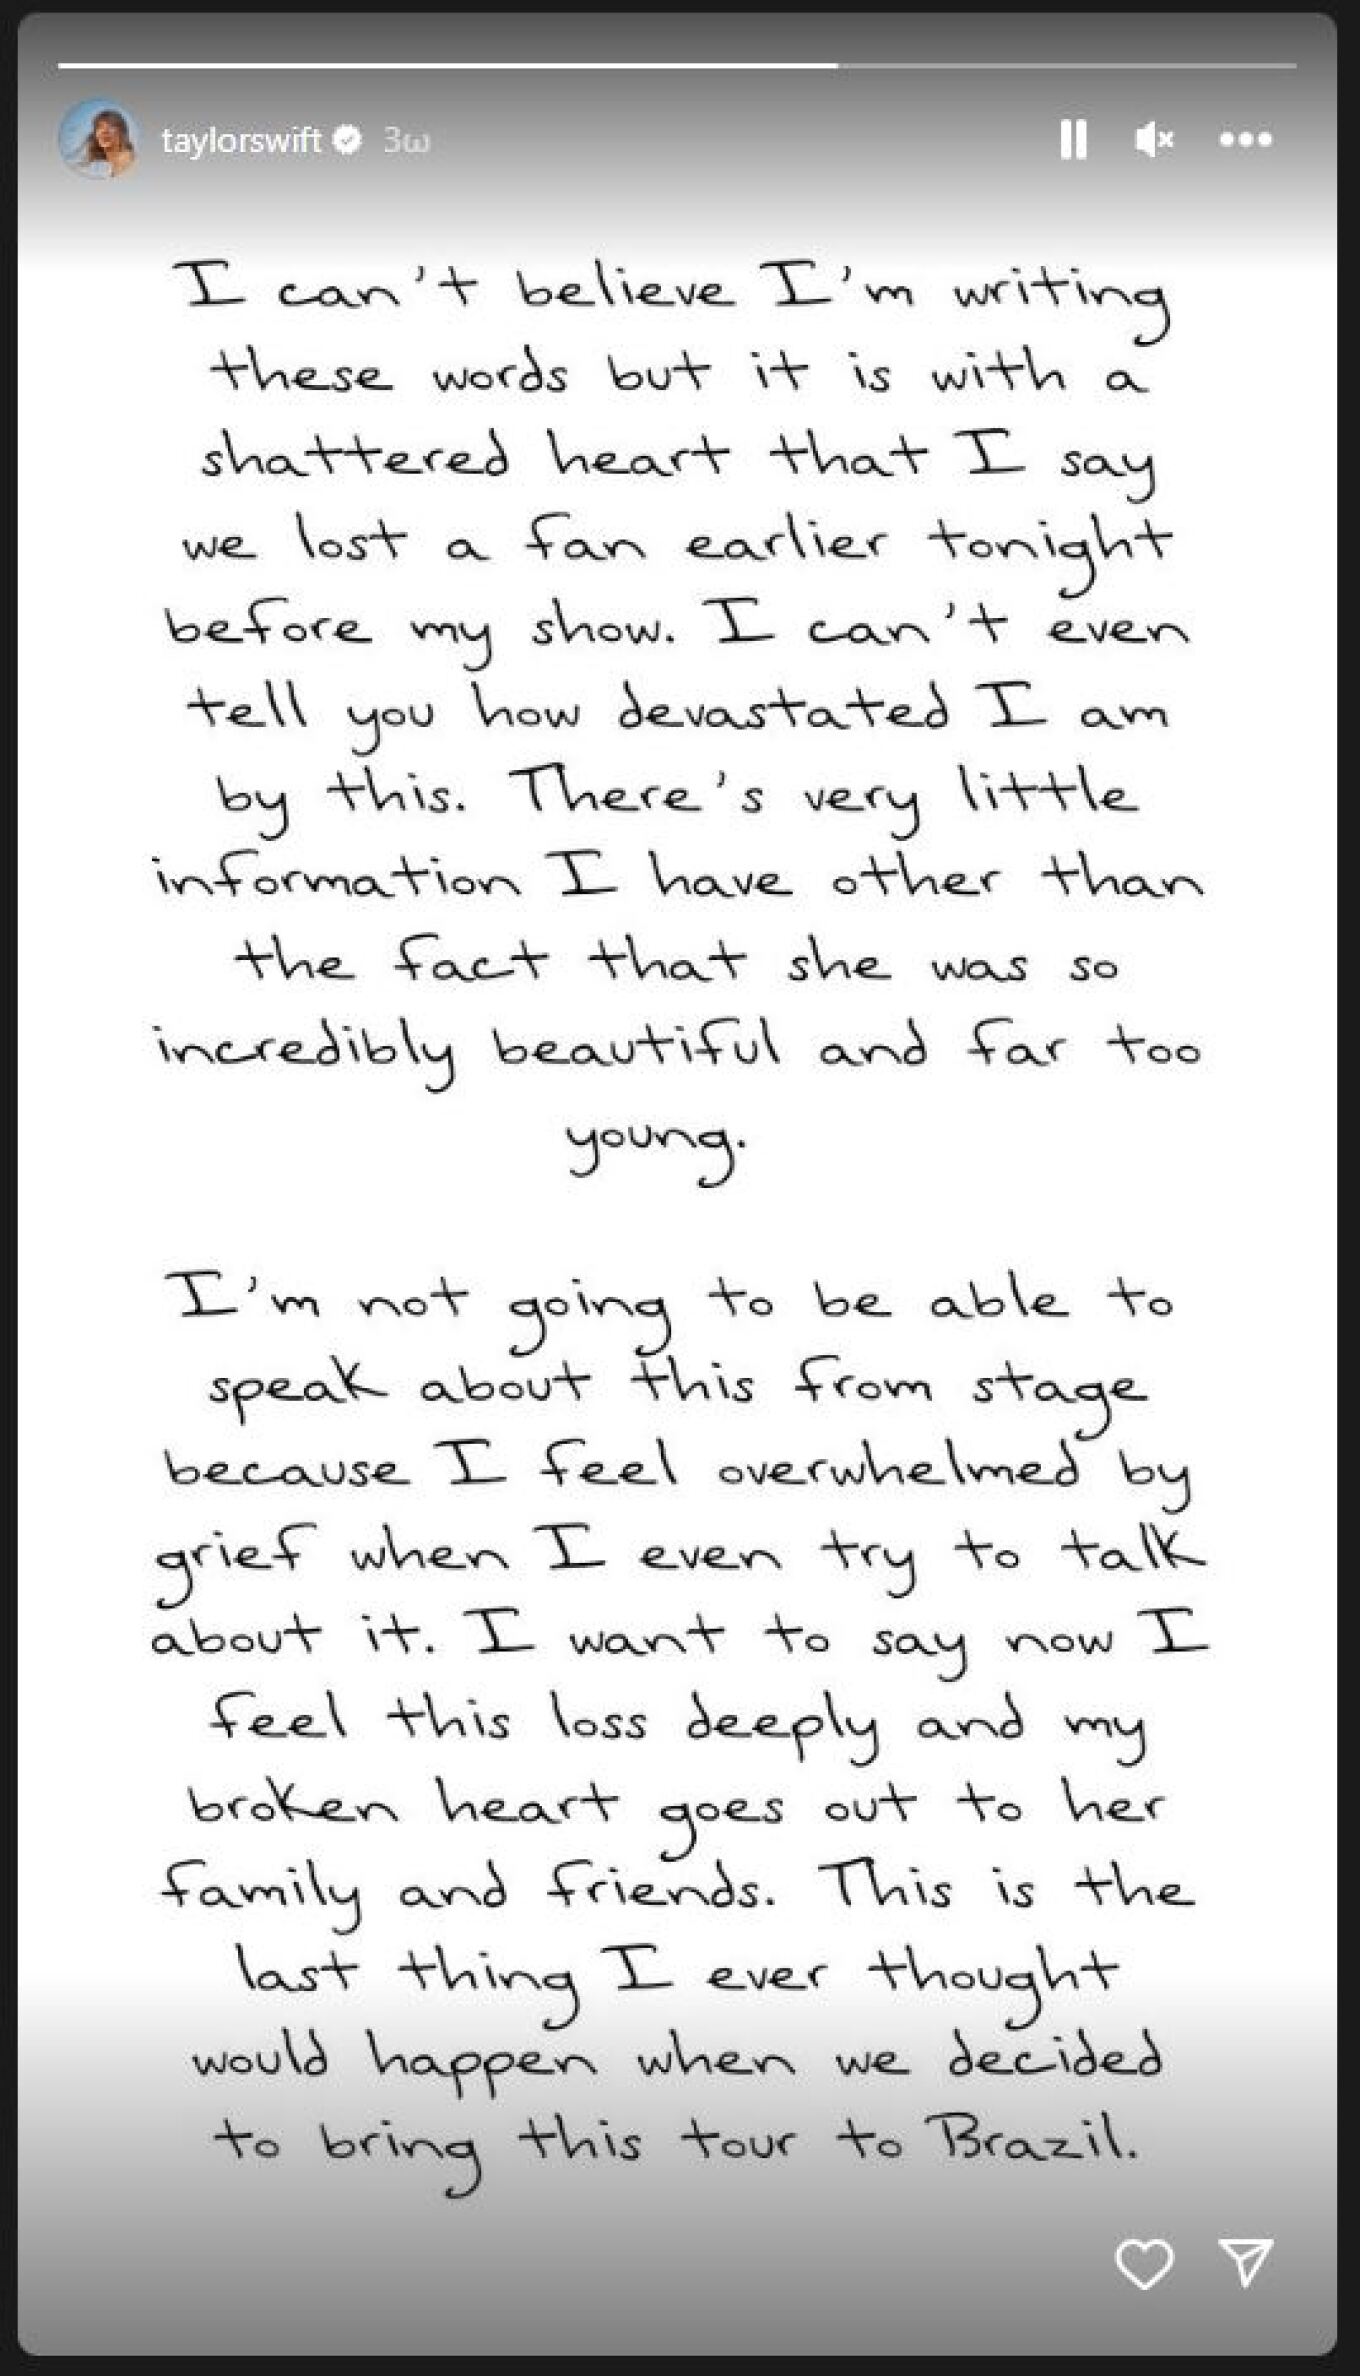 taylorswift 3ω
I can't believe I'm writing
these words but it is with a
shattered heart that I say
we lost a fan earlier tonight
before my show. I can't even
tell you how devastated I am
by this. There's very little
information I have other than
the fact that she was so
incredibly beautiful and far too
young.
I'm not going to be able to
speak about this from stage
because I feel overwhelmed by
grief when I even try to talk
about it. I want to say now I
feel this loss deeply and my
broken heart goes out to her
family and friends. This is the
last thing I ever thought
would happen when we decided
to bring this tour to Brazil.